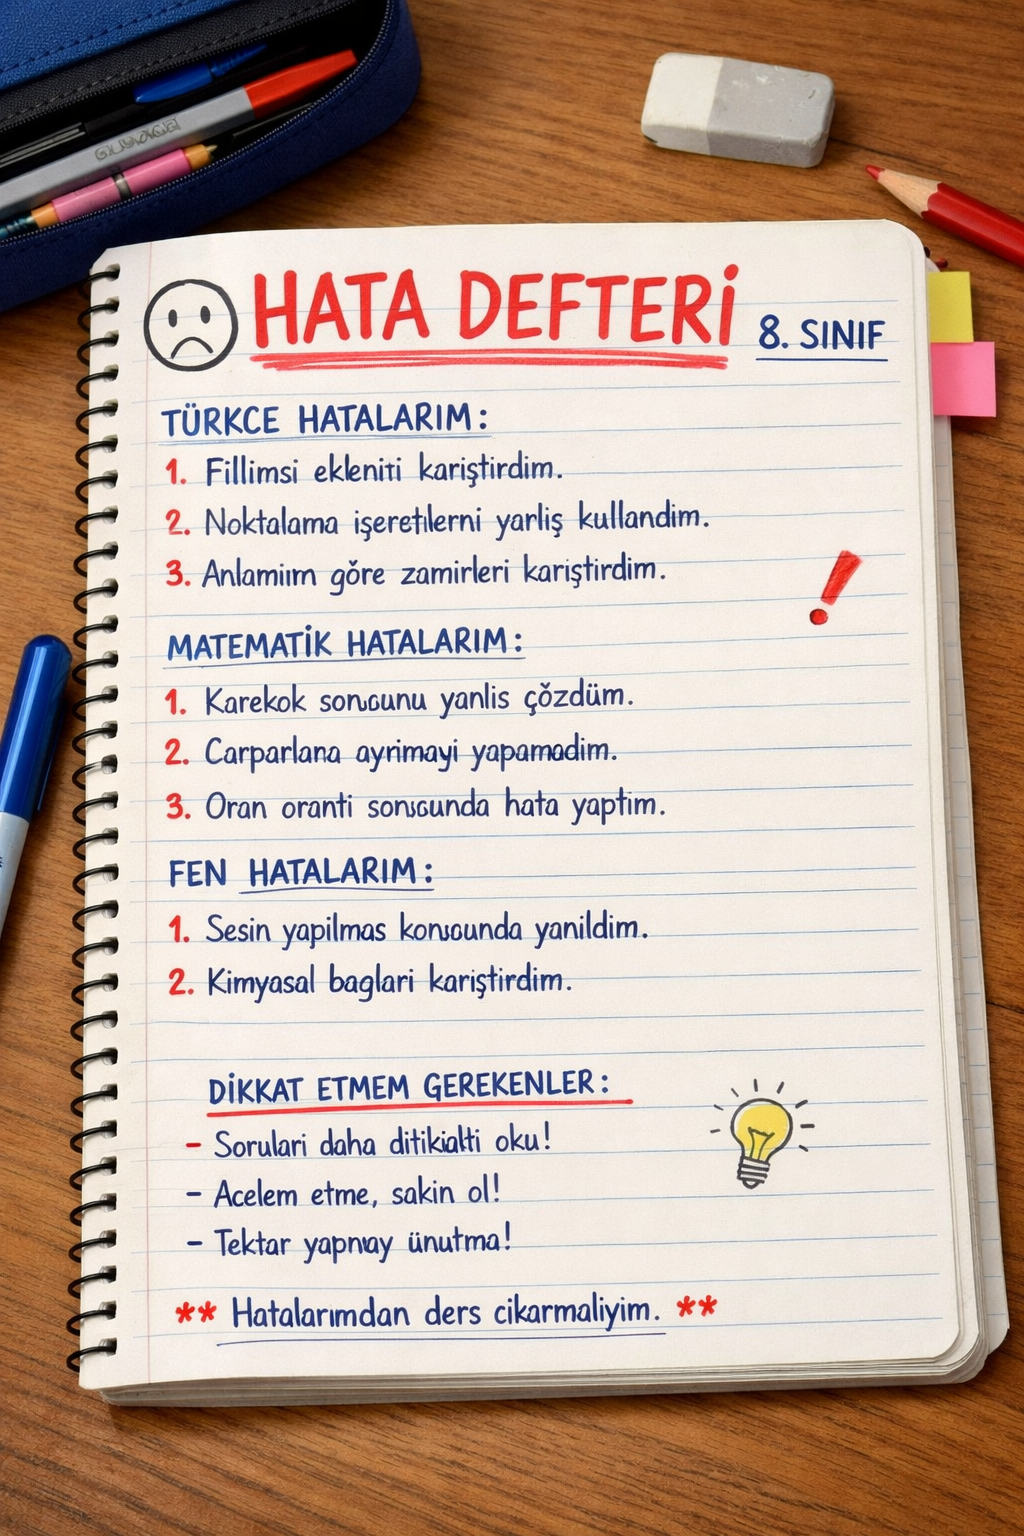 HATA DEFTERİ
8. SINIF
TÜRKCE HATALARIM:
1. Fillimsi ekleniti kariştirdim.
2. Noktalama işeretilerni yarliş kullandim.
3. Anlamiım göre zamirleri kariştirdim.
MATEMATİK HATALARIM:
1. Karekok sonucunu yanlis çözdüm.
2. Carparlana ayrimayi yapamadim.
3. Oran oranti sonsounda hata yaptim.
FEN HATALARIM:
1. Sesin yapilmas konsounda yanildim.
2. Kimyasal baglari kariştirdim.
DİKKAT ETMEM GEREKENLER:
- Sorulari daha ditikialti oku!
- Acelem etme, sakin ol!
- Tektar yapnay ünutma!
** Hatalarımdan ders cikarmaliyim. **